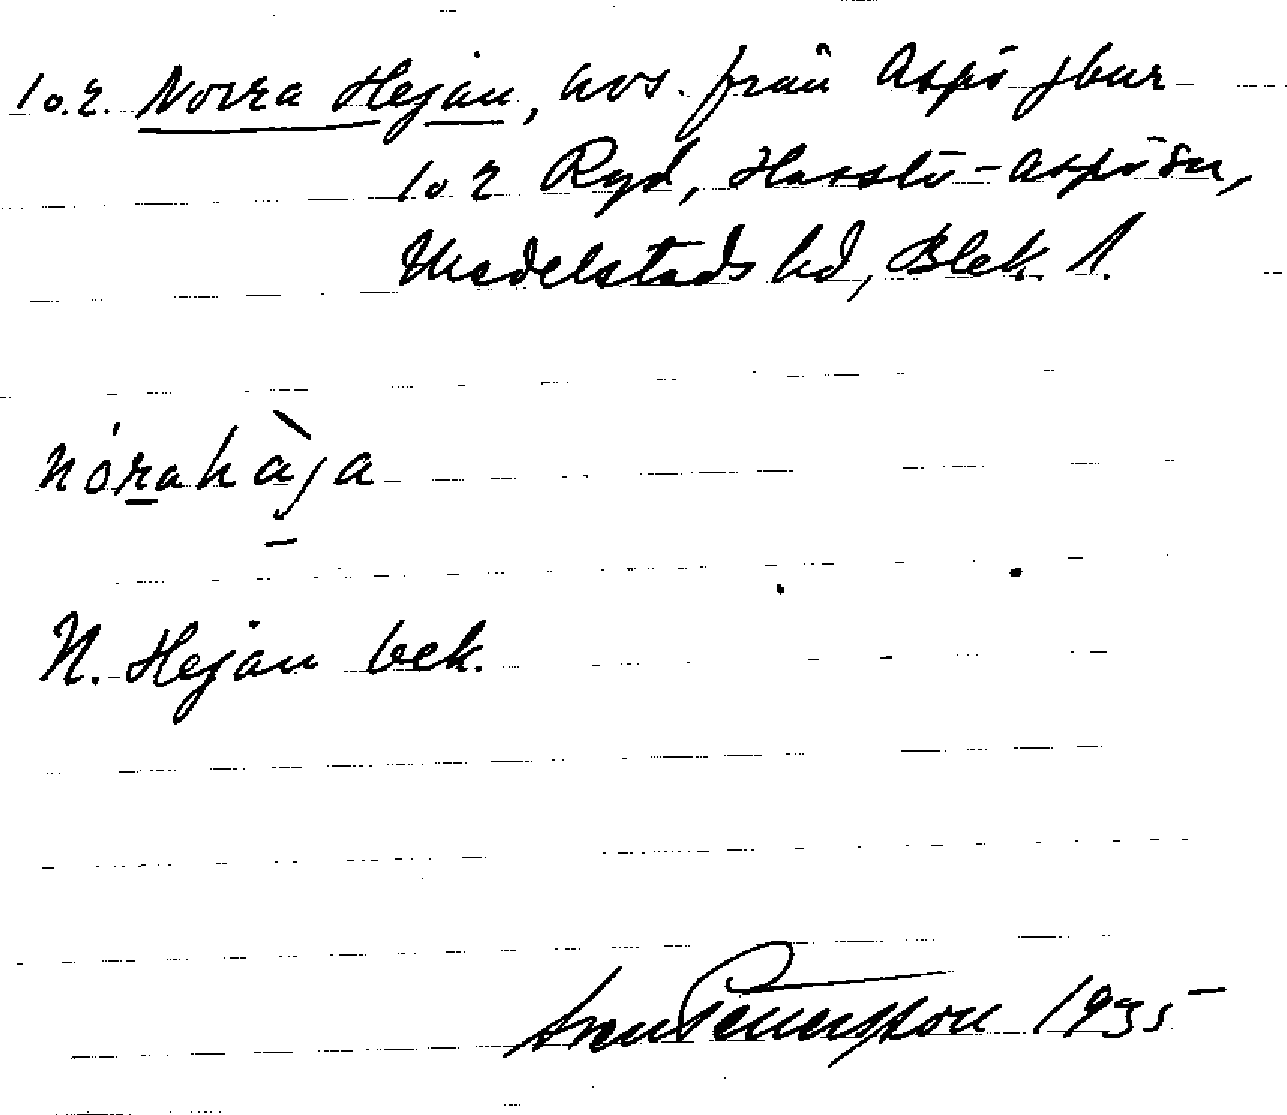 1 o. 2. Norra Hejan, avs. från Aspö Jbur
1 o 2 Ryd, Hasslö-Aspö sn,
Medelstads hd, Blek. l.
nórahàja
N. Hejan bek.
Sven Pettersson 1935